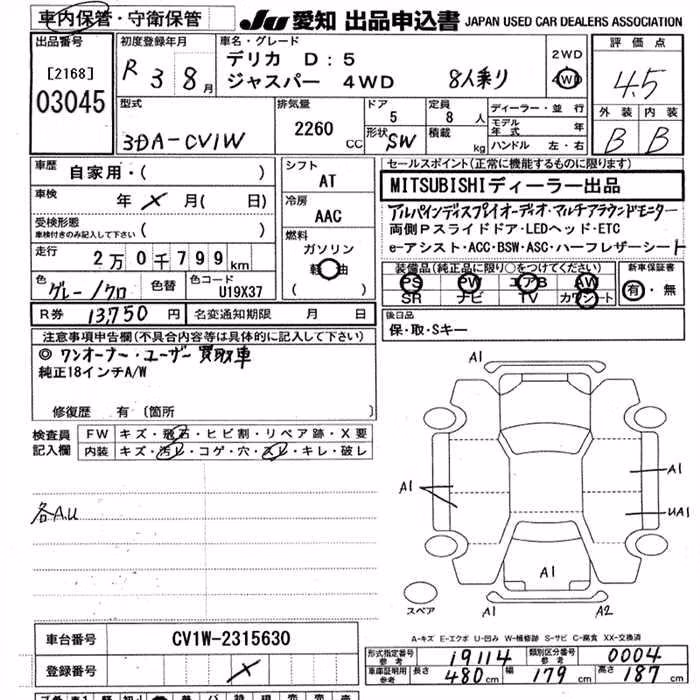 車内保管・守衛保管
JU 愛知 出品申込書 JAPAN USED CAR DEALERS ASSOCIATION
出品番号
[2168]
03045
初度登録年月
R 3 8月
車名・グレード
デリカ D:5
ジャスパー 4WD 8人乗り
2WD
4WD
評価点
4.5
外装 内装
B B
型式
3DA-CV1W
排気量
2260 CC
ドア
5
形状 SW
定員
8 人
積載 kg
ディーラー・並行
モデル年式 年
ハンドル 左・右
車歴
自家用・( )
車検
年 × 月( 日)
受検形態
車検付きのみ記入して下さい ( )
走行
2万0千799km
色
グレー/クロ
色替
色コード
U19X37
R券 13,750円
名変通知期限 月 日
シフト
AT
冷房
AAC
燃料
ガソリン
軽油
( )
セールスポイント(正常に機能するものに限ります)
MITSUBISHIディーラー出品
アルパインディスプレイオーディオ・マルチアラウンドモニター
両側Pスライドドア・LEDヘッド・ETC
e-アシスト・ACC・BSW・ASC・ハーフレザーシート
装備品(純正品に限り○をつけてください)
PS PW エアB AW
SR ナビ TV カワシート
新車保証書
有・無
後日品
保・取・Sキー
注意事項申告欄(不具合内容等は具体的に記入して下さい)
◎ワンオーナー・ユーザー買取車
純正18インチA/W
修復歴 有 〔箇所 〕
検査員
記入欄
FW キズ・飛石・ヒビ割・リペア跡・X要
内装 キズ・汚レ・コゲ・穴・スレ・キレ・破レ
各A.U
A1
A1
A1
UA1
A1
A1
A2
スペア
A-キズ E-エクボ U-凹み W-補修跡 S-サビ C-腐食 XX-交換済
車台番号 CV1W-2315630
登録番号 ×
形式指定番号 参考 19114
類別区分番号 参考 0004
車庫証明用 参考 長さ 480cm 幅 179cm 高さ 187cm